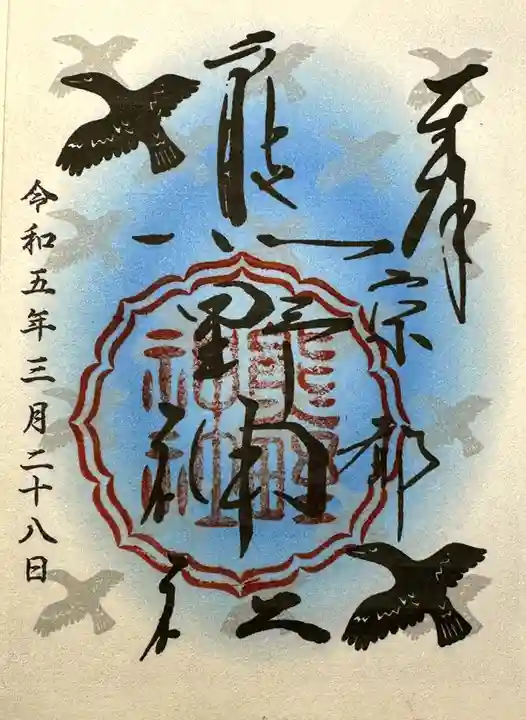 奉拝
京都
熊野神社
熊野
神社
令和五年三月二十八日